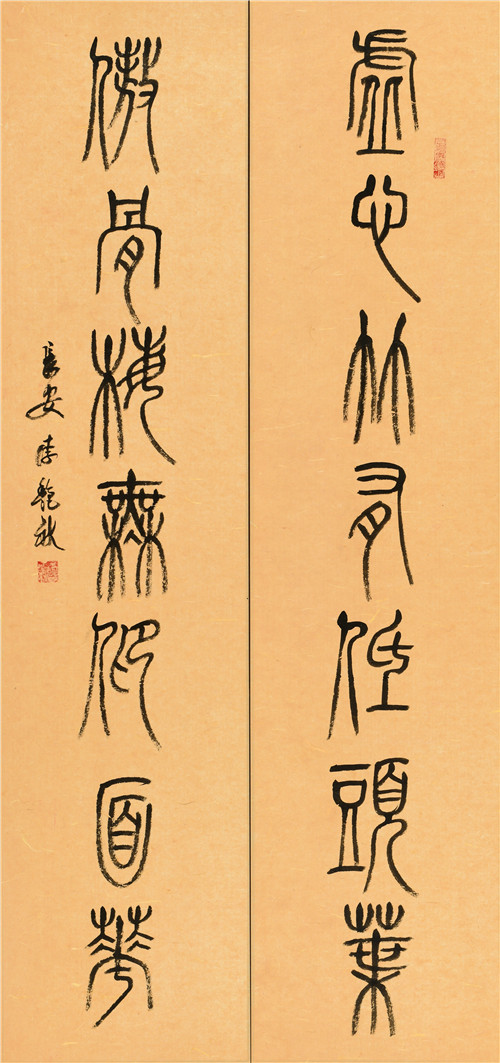 虛心竹有低頭葉
傲骨梅無仰面華
長安李